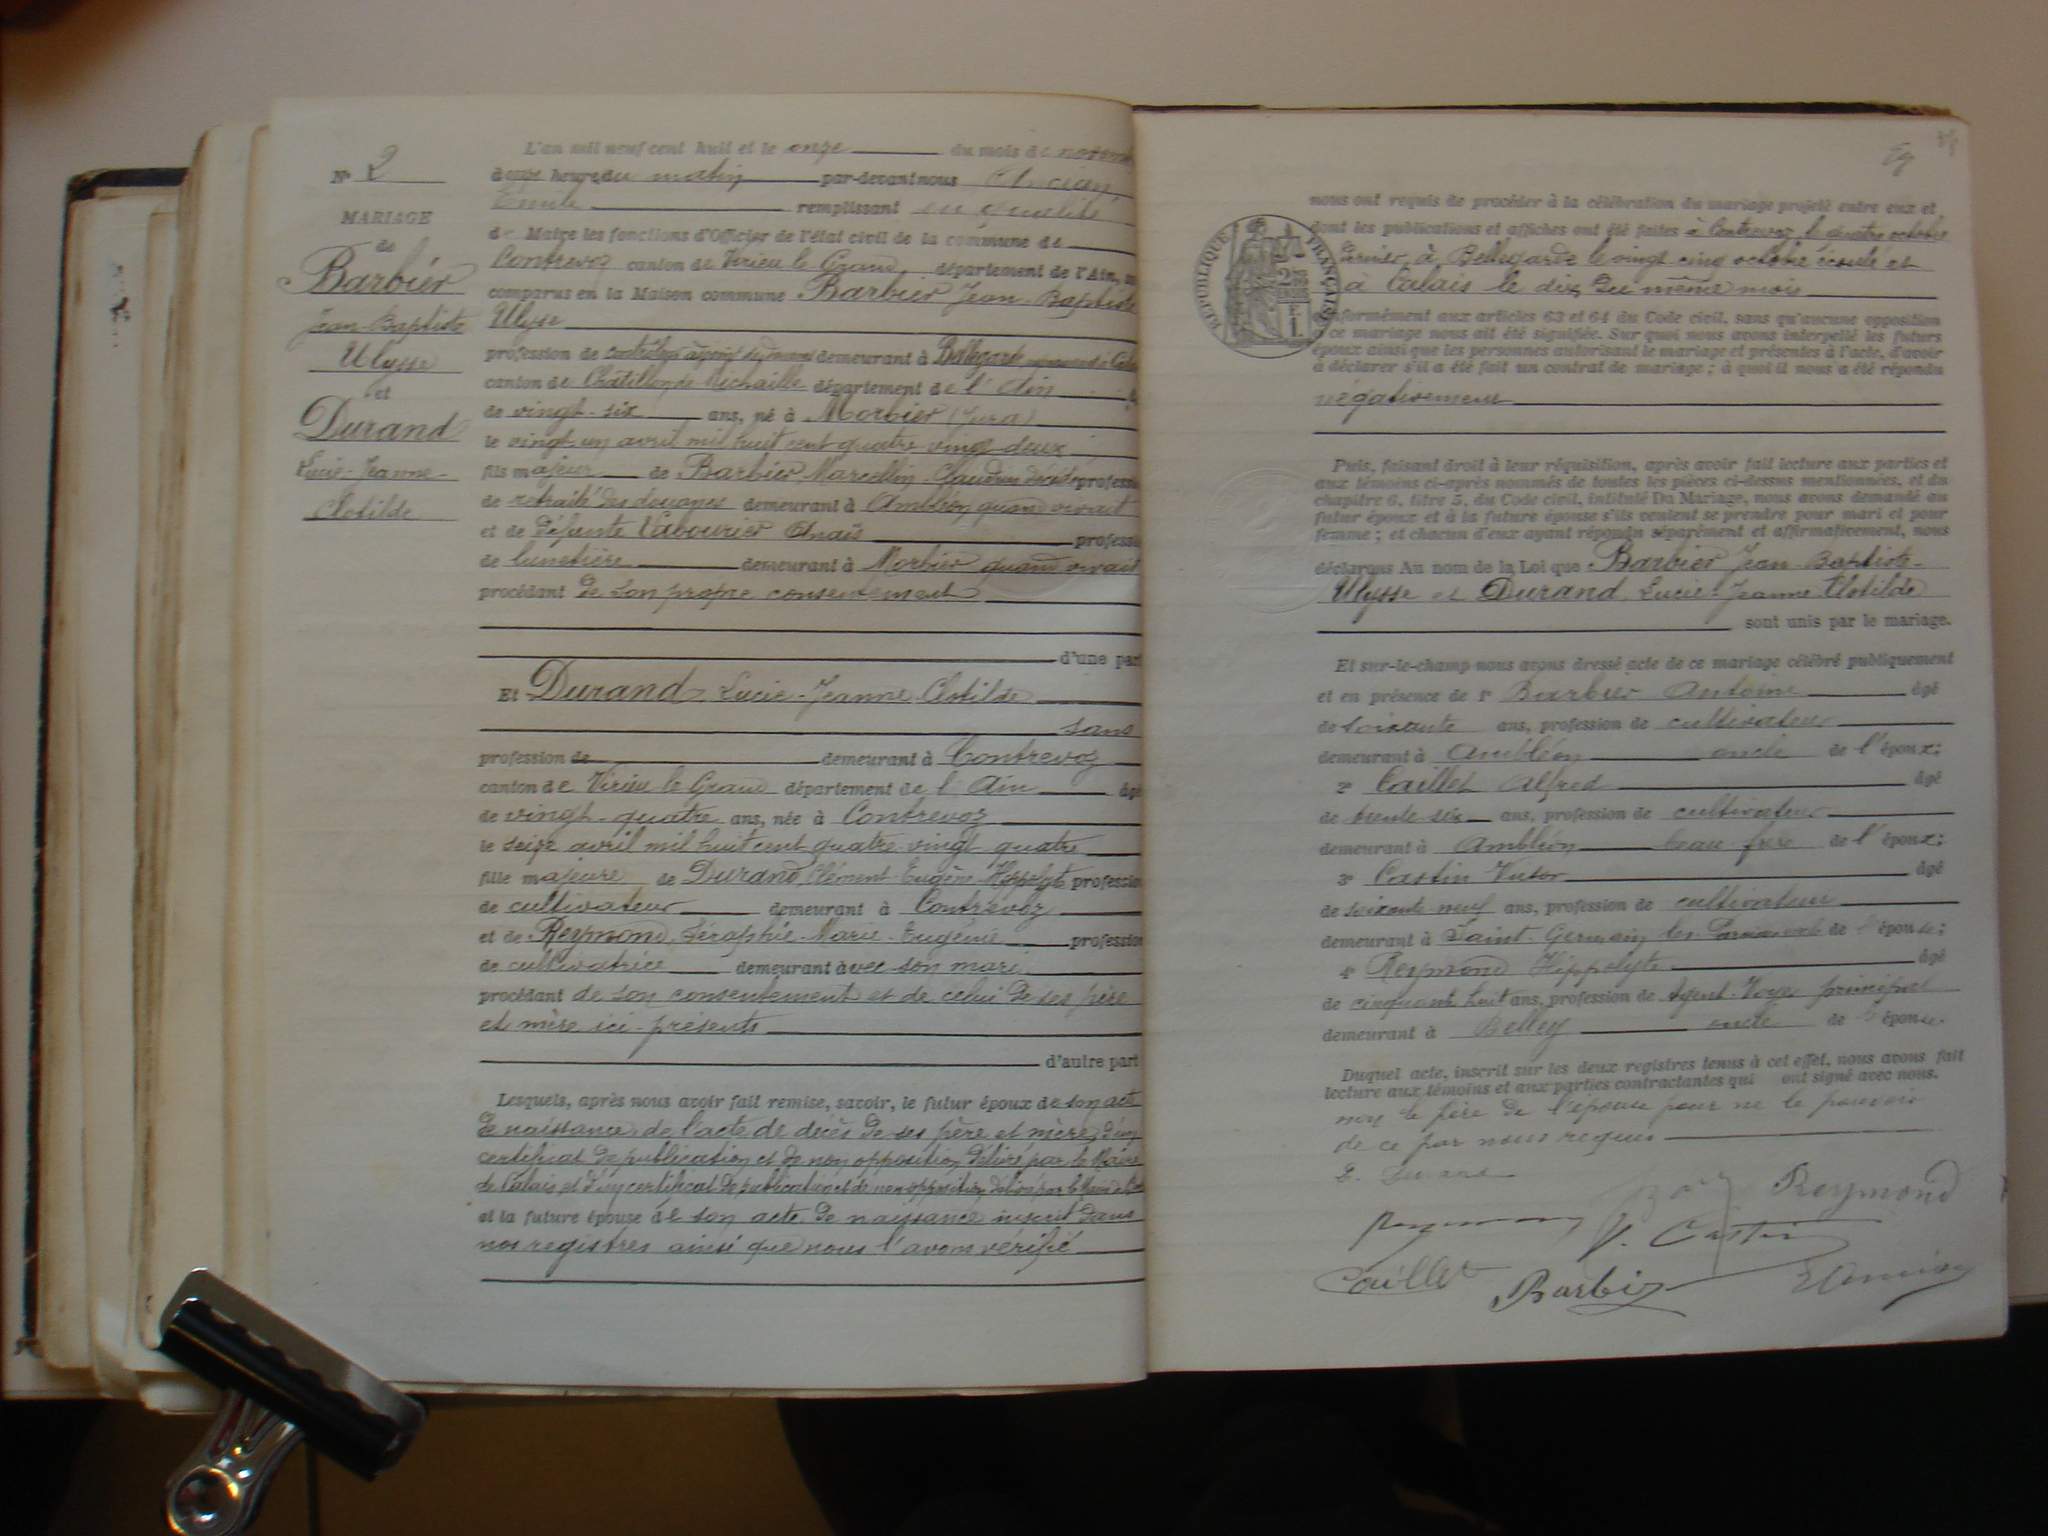 L'an mil neuf cent huit et le onze du mois de
heure du matin par-devant nous
Emile remplissant en qualité
de Maire les fonctions d'Officier de l'état civil de la commune de
Contrevoz canton de Virieu le Grand, département de l'Ain,
comparus en la Maison commune Barbier Jean-Baptiste
Ulysse
profession de demeurant à Bellegarde
canton de Châtillon de Michaille département de l'Ain
de vingt-six ans, né à Morbier (Jura)
le vingt un avril mil huit cent quatre vingt deux
fils majeur de Barbier Marcellin Claudin décédé profession
de retraité des douanes demeurant à Ambléon quand vivait
et de défunte Vabourier Anaïs profession
de lunetière demeurant à Morbier quand vivait
procédant de son propre consentement
d'une part
Et Durand Lucie-Jeanne Clotilde
sans
profession de demeurant à Contrevoz
canton de Virieu le Grand département de l'Ain âgé
de vingt-quatre ans, née à Contrevoz
le seize avril mil huit cent quatre-vingt quatre
fille majeure de Durand Clément Eugène Hippolyte profession
de cultivateur demeurant à Contrevoz
et de Reymond, Séraphie-Marie-Eugénie profession
de cultivatrice demeurant avec son mari
procédant de son consentement et de celui de ses père
et mère ici-présents
d'autre part
Lesquels, après nous avoir fait remise, savoir, le futur époux de son acte
de naissance, de l'acte de décès de ses père et mère, d'un
certificat de publication et de non opposition délivré par le Maire
de Calais et d'un certificat de publication et de non opposition délivré par le Maire de
et la future épouse de son acte de naissance inscrit dans
nos registres ainsi que nous l'avons vérifié
N° 2
MARIAGE
de
Barbier
Jean-Baptiste
Ulysse
et
Durand
Lucie-Jeanne-
Clotilde
nous ont requis de procéder à la célébration du mariage projeté entre eux et
dont les publications et affiches ont été faites à Contrevoz le quatre octobre
dernier, à Bellegarde le vingt cinq octobre écoulé et
à Calais le dix du même mois
conformément aux articles 63 et 64 du Code civil, sans qu'aucune opposition
à ce mariage nous ait été signifiée. Sur quoi nous avons interpellé les futurs
époux ainsi que les personnes autorisant le mariage et présentes à l'acte, d'avoir
à déclarer s'il a été fait un contrat de mariage ; à quoi il nous a été répondu
négativement
Puis, faisant droit à leur réquisition, après avoir fait lecture aux parties et
aux témoins ci-après nommés de toutes les pièces ci-dessus mentionnées, et du
chapitre 6, titre 5, du Code civil, intitulé Du Mariage, nous avons demandé au
futur époux et à la future épouse s'ils veulent se prendre pour mari et pour
femme ; et chacun d'eux ayant répondu séparément et affirmativement, nous
déclarons Au nom de la Loi que Barbier Jean-Baptiste-
Ulysse et Durand, Lucie-Jeanne-Clotilde
sont unis par le mariage.
Et sur-le-champ nous avons dressé acte de ce mariage célébré publiquement
et en présence de 1° Barbier Antoine âgé
de soixante ans, profession de cultivateur
demeurant à Ambléon oncle de l'époux;
2° Caillet Alfred âgé
de trente-six ans, profession de cultivateur
demeurant à Ambléon beau-frère de l'époux;
3° Castin Victor âgé
de soixante neuf ans, profession de cultivateur
demeurant à Saint-Germain les Paroisses de l'épouse;
4° Reymond Hippolyte âgé
de cinquante huit ans, profession de Agent-Voyer principal
demeurant à Belley oncle de l'épouse.
Duquel acte, inscrit sur les deux registres tenus à cet effet, nous avons fait
lecture aux témoins et aux parties contractantes qui ont signé avec nous.
non le père de l'épouse pour ne le pouvoir
de ce par nous requis
Reymond
V. Castin
Caillet Barbier
RÉPUBLIQUE FRANÇAISE